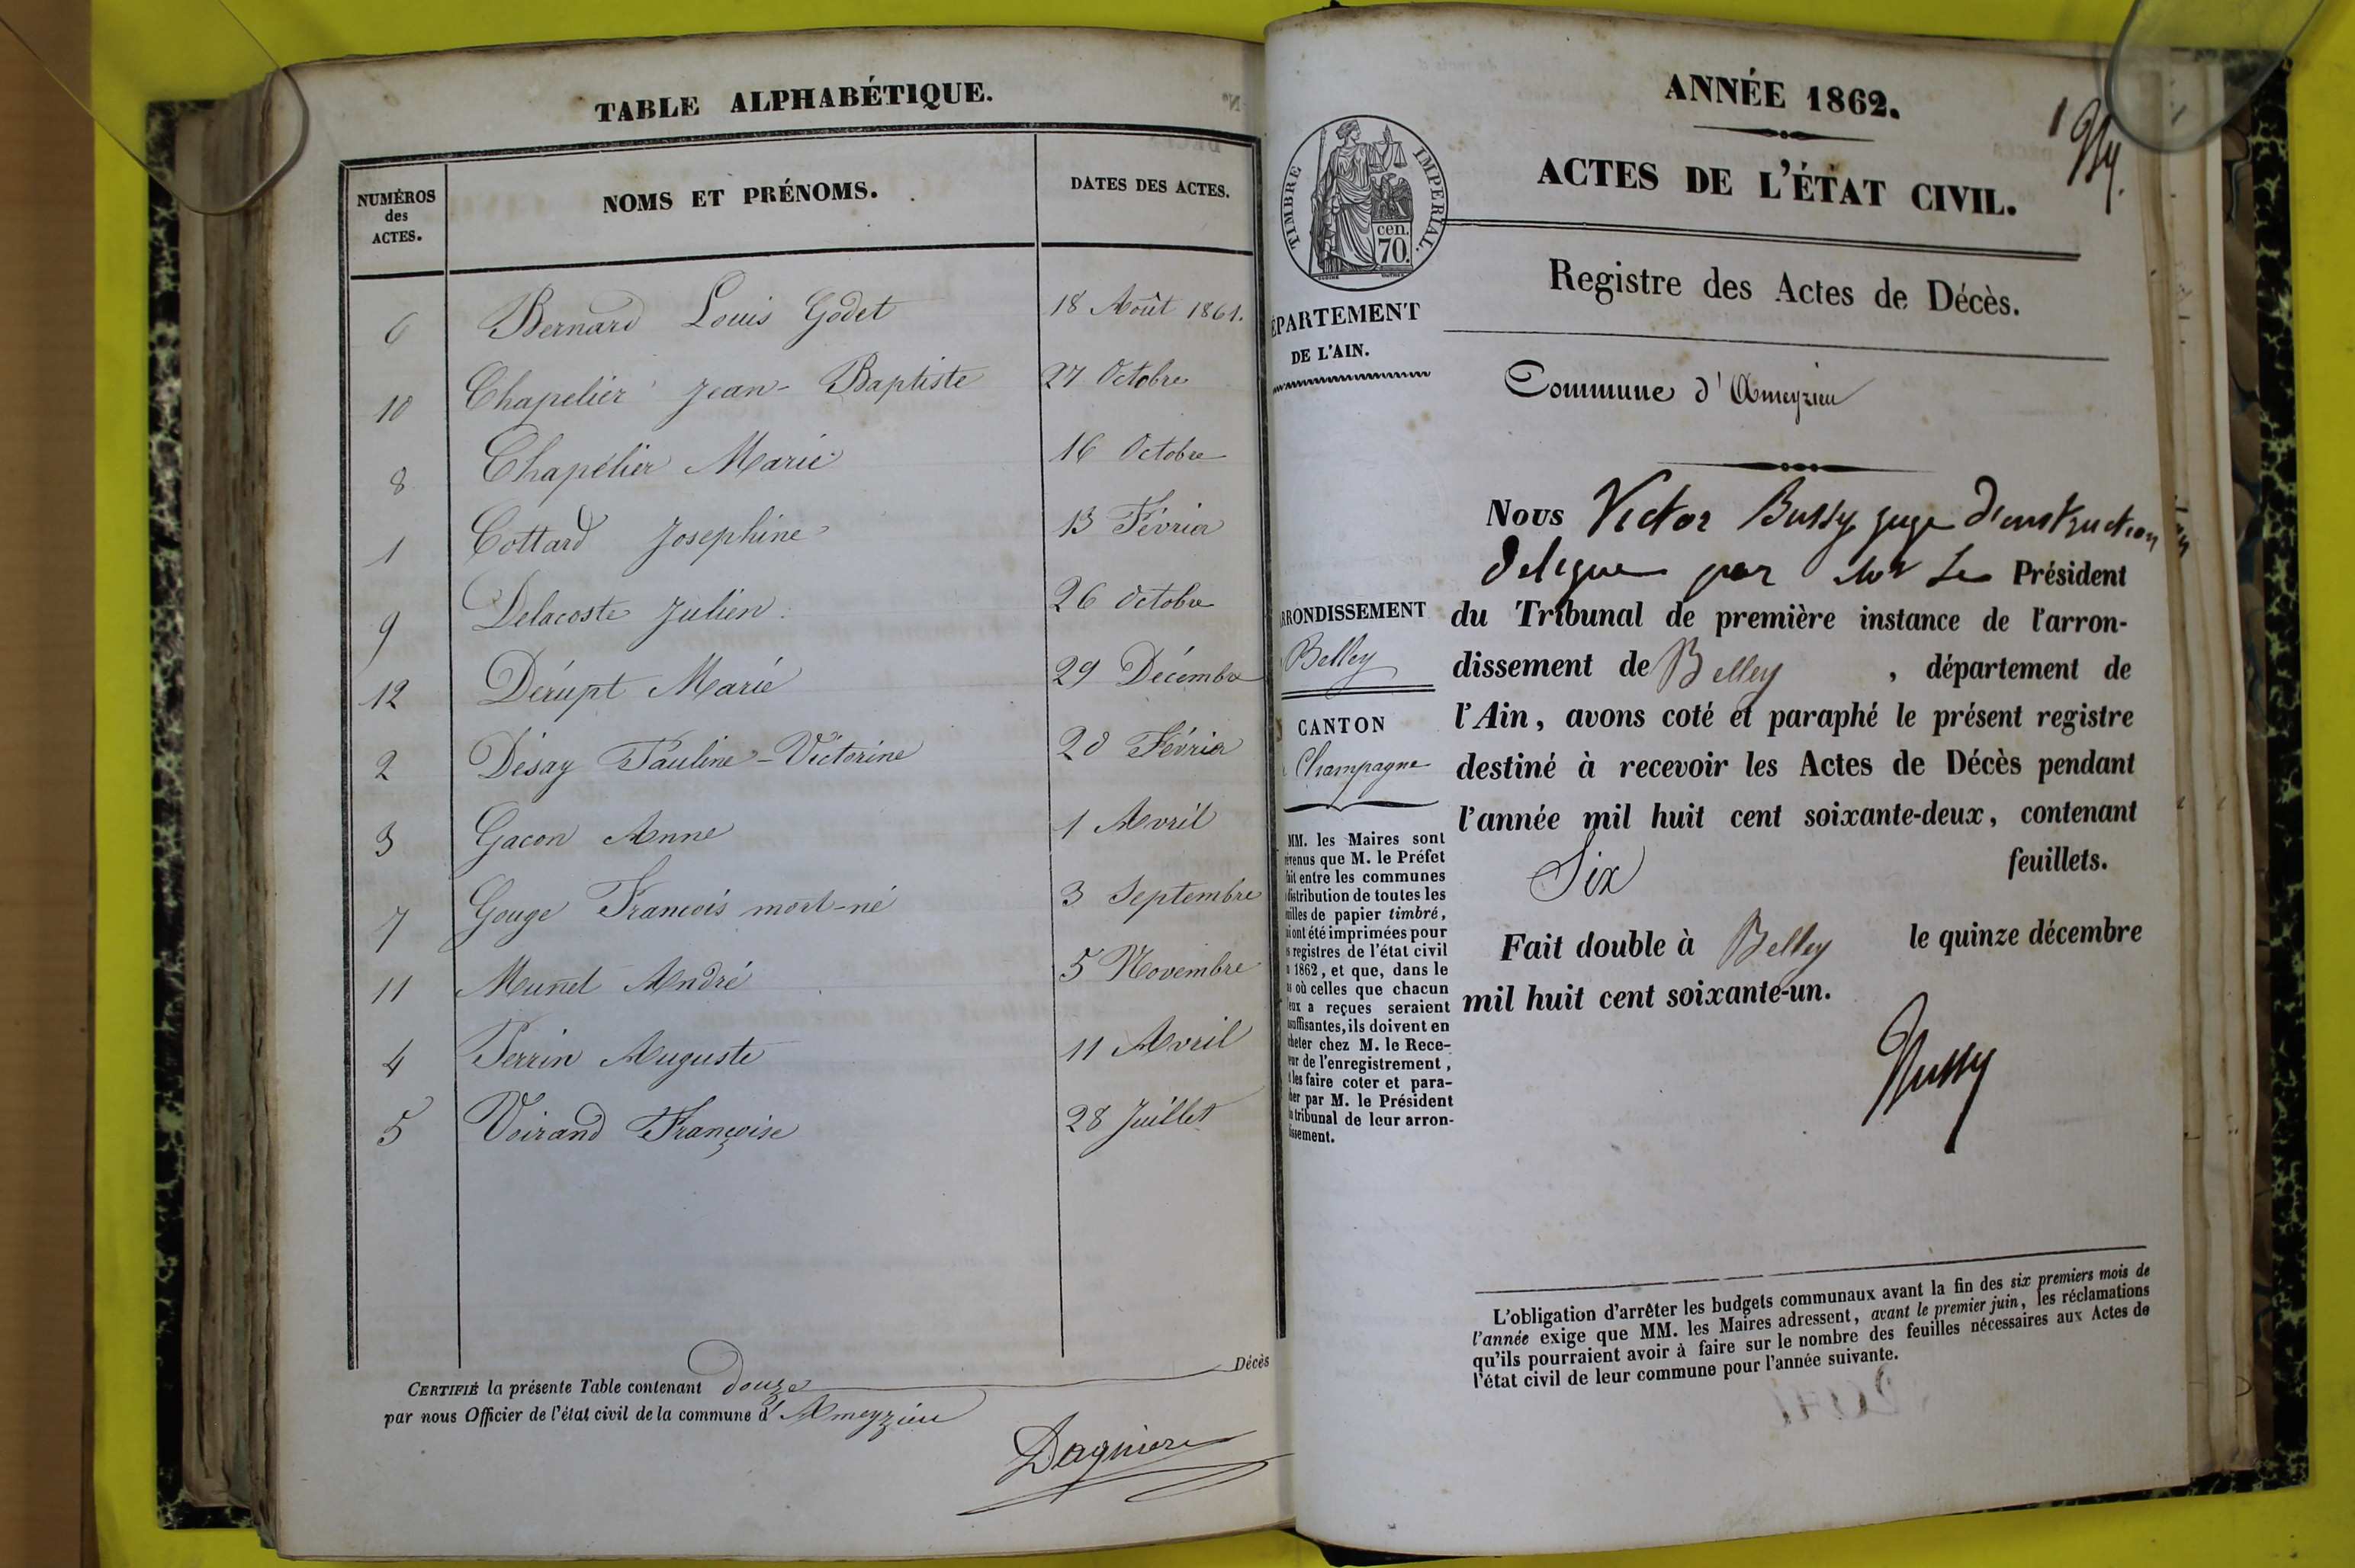 TABLE ALPHABÉTIQUE.
NUMÉROS
des
ACTES.
NOMS ET PRÉNOMS.
DATES DES ACTES.
6 Bernard Louis Godet 18 Août 1861.
10 Chapelier Jean-Baptiste 27 Octobre
8 Chapelier Marie 16 Octobre
1 Cottard Josephine 13 Février
9 Delacoste Julien 26 Octobre
12 Dérupt Marie 29 Décembre
2 Désay Pauline-Victorine 20 Février
3 Gacon Anne 1 Avril
7 Gouge Francois mort-né 3 Septembre
11 Munet André 5 Novembre
4 Perrin Auguste 11 Avril
5 Voirand Françoise 28 Juillet
CERTIFIÉ la présente Table contenant douze Décès
par nous Officier de l'état civil de la commune d'Ameyzieu
Dagniere
ANNÉE 1862.
1
ACTES DE L'ÉTAT CIVIL.
TIMBRE IMPERIAL.
cen.
70.
Registre des Actes de Décès.
ÉPARTEMENT
DE L'AIN.
Commune d'Ameyzieu
Nous Victor Bussy juge d'instruction
delegue par Mr Le Président
du Tribunal de première instance de l'arron-
dissement de Belley, département de
l'Ain, avons coté et paraphé le présent registre
destiné à recevoir les Actes de Décès pendant
l'année mil huit cent soixante-deux, contenant
Six feuillets.
Fait double à Belley le quinze décembre
mil huit cent soixante-un.
Bussy
RRONDISSEMENT
Belley
CANTON
Champagne
MM. les Maires sont
évenus que M. le Préfet
ait entre les communes
distribution de toutes les
uilles de papier timbré,
ui ont été imprimées pour
s registres de l'état civil
1862, et que, dans le
as où celles que chacun
eux a reçues seraient
suffisantes, ils doivent en
cheter chez M. le Rece-
eur de l'enregistrement,
t les faire coter et para-
her par M. le Président
u tribunal de leur arron-
issement.
L'obligation d'arrêter les budgets communaux avant la fin des six premiers mois de
l'année exige que MM. les Maires adressent, avant le premier juin, les réclamations
qu'ils pourraient avoir à faire sur le nombre des feuilles nécessaires aux Actes de
l'état civil de leur commune pour l'année suivante.